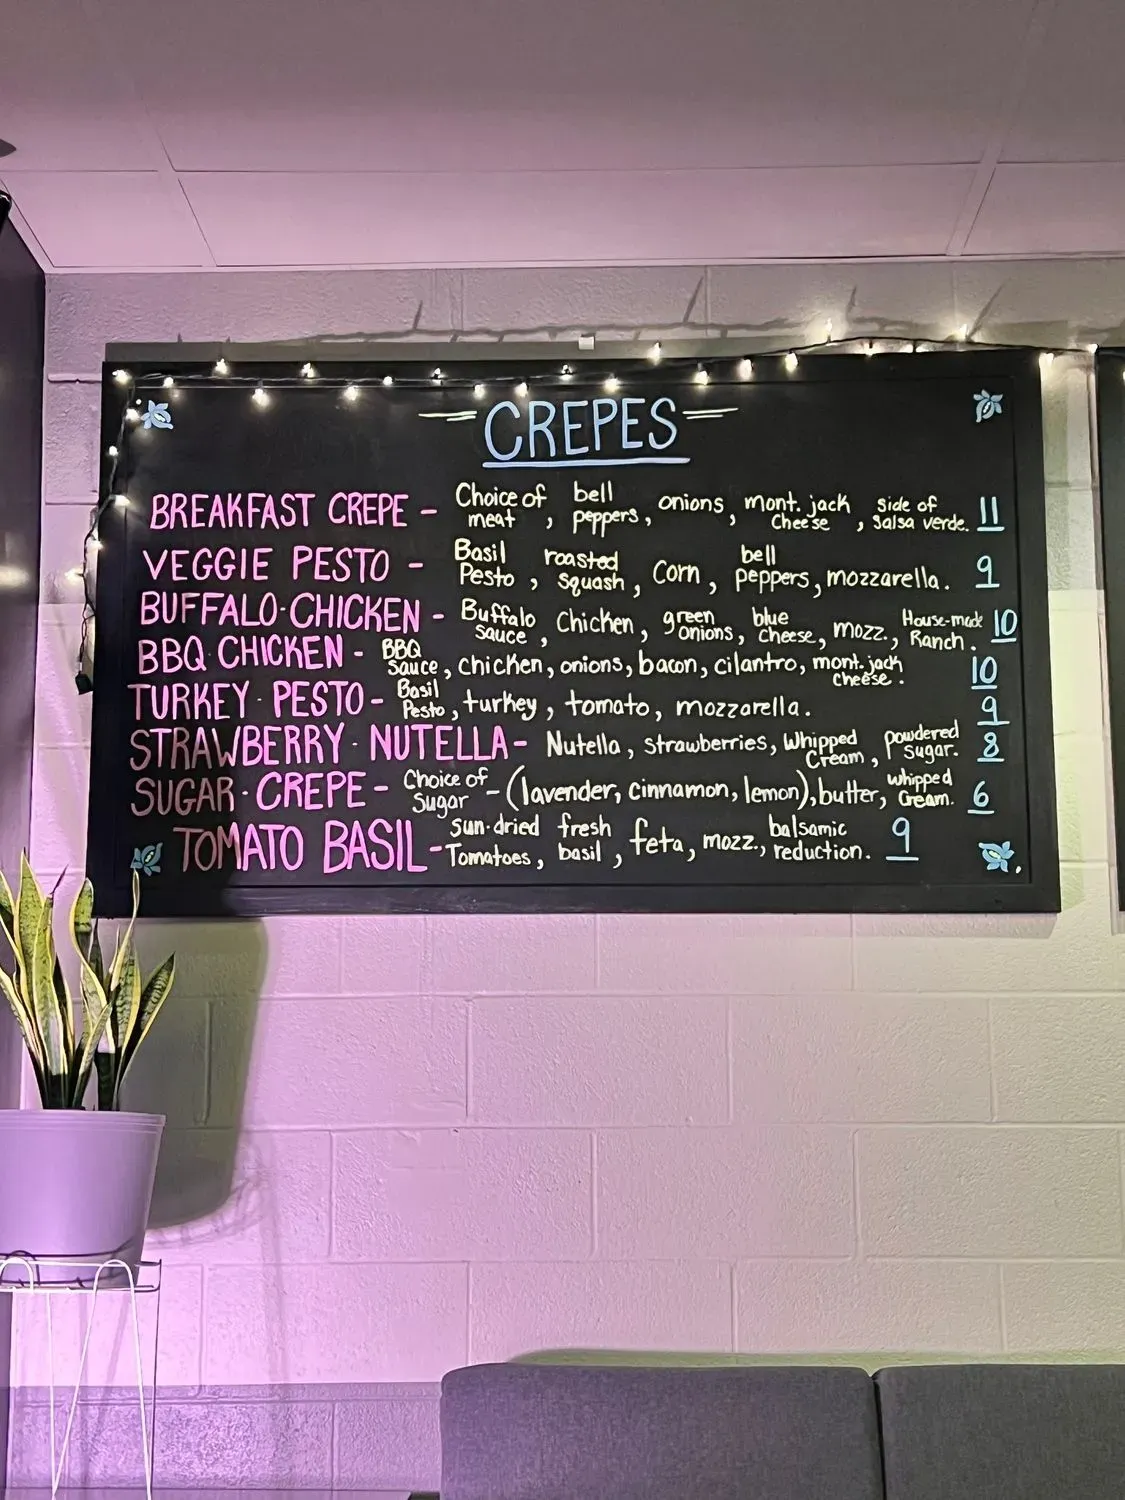 CREPES
BREAKFAST CREPE - Choice of meat, bell peppers, onions, mont. jack cheese, side of salsa verde. 11
VEGGIE PESTO - Basil Pesto, roasted squash, Corn, bell peppers, mozzarella. 9
BUFFALO·CHICKEN - Buffalo sauce, Chicken, green onions, blue cheese, mozz., House-made Ranch. 10
BBQ·CHICKEN - BBQ sauce, chicken, onions, bacon, cilantro, mont. jack cheese. 10
TURKEY·PESTO - Basil Pesto, turkey, tomato, mozzarella. 9
STRAWBERRY·NUTELLA - Nutella, strawberries, Whipped Cream, powdered sugar. 8
SUGAR·CREPE - Choice of Sugar - (lavender, cinnamon, lemon), butter, whipped Cream. 6
TOMATO BASIL - sun-dried Tomatoes, fresh basil, feta, mozz., balsamic reduction. 9